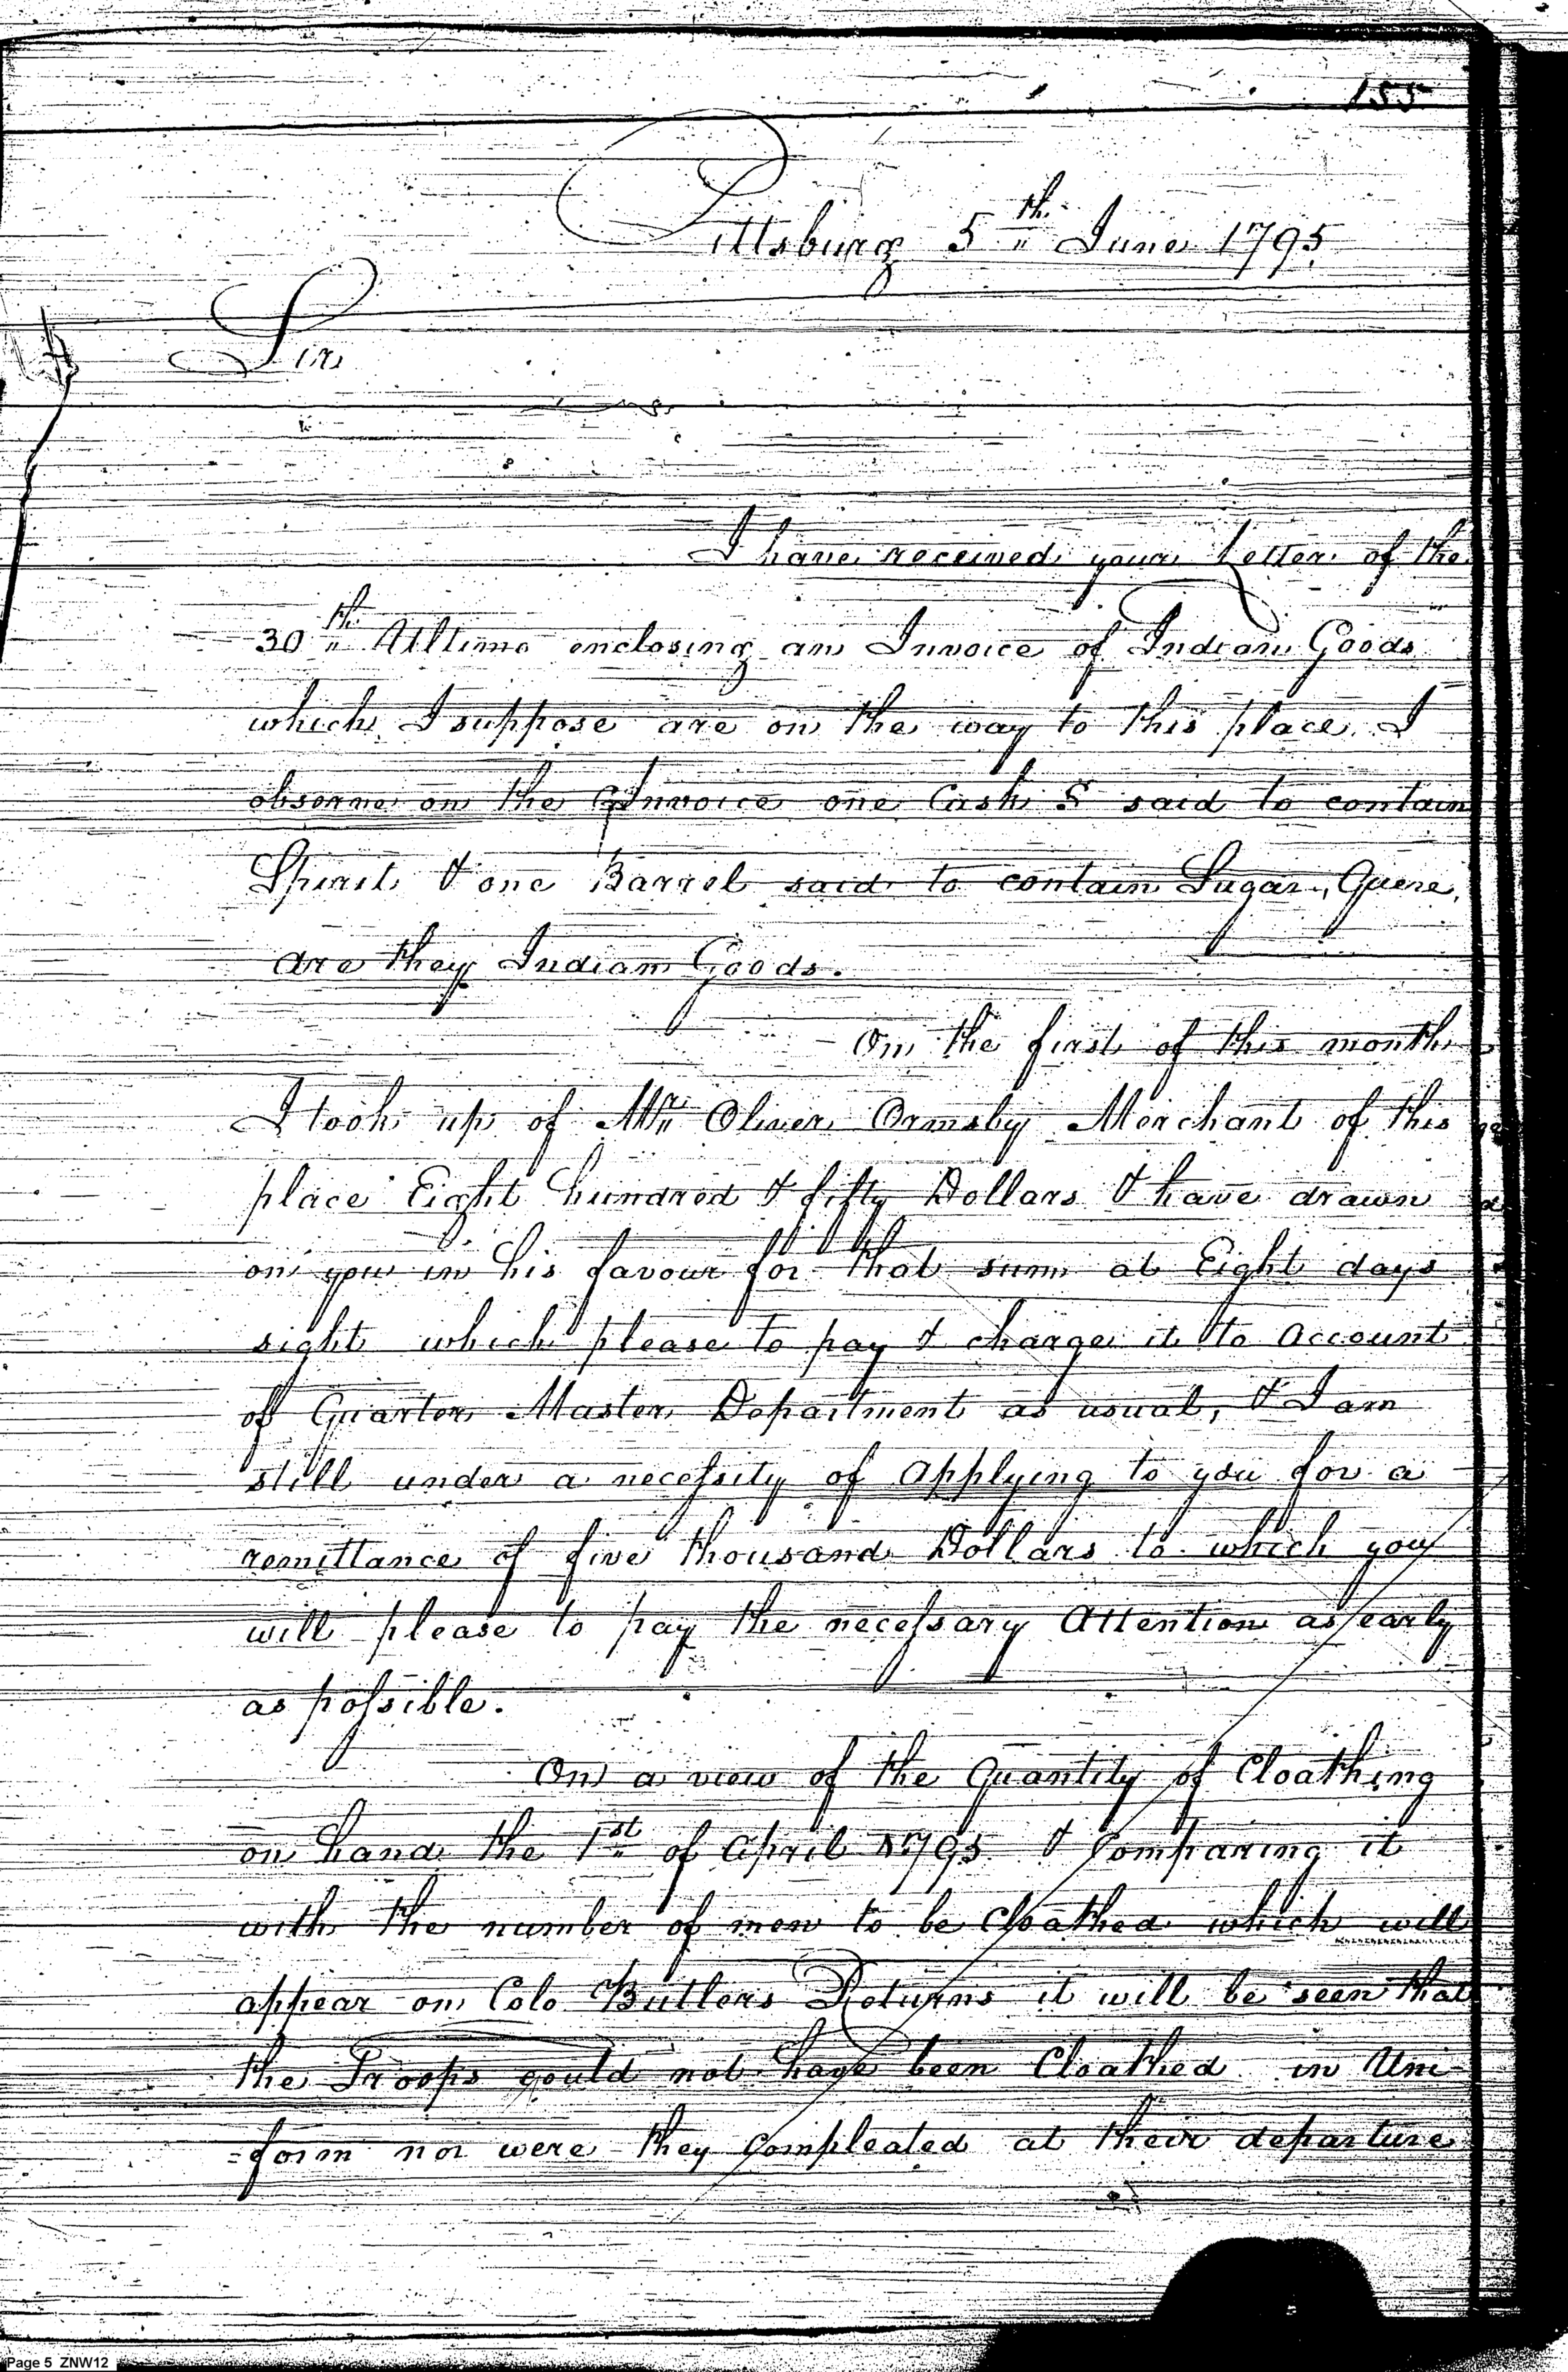 155
Pittsburg 5th June 1795
Sir
I have received your Letter of the
30th Ultimo enclosing an Invoice of Indian Goods
which I suppose are on the way to this place. I
observe on the Invoice one Cask & said to contain
Spirit & one Barrel said to contain Sugar, Quere,
are they Indian Goods.
On the first of this month
I took up of Mr. Oliver Ormsby Merchant of this
place Eight hundred & fifty Dollars & have drawn
on you in his favour for that sum at Eight days
sight which please to pay & charge it to Account
of Quarter Master Department as usual, & I am
still under a necessity of applying to you for a
remittance of five thousand Dollars to which you
will please to pay the necessary Attention as early
as possible.
On a view of the Quantity of Cloathing
on hand the 1st of April 1795 & Comparing it
with the number of men to be Cloathed which will
appear on Colo Butlers Returns it will be seen that
the Troops could not have been Cloathed in Uni-
=form nor were they Compleated at their departure
Page 5 ZNW12